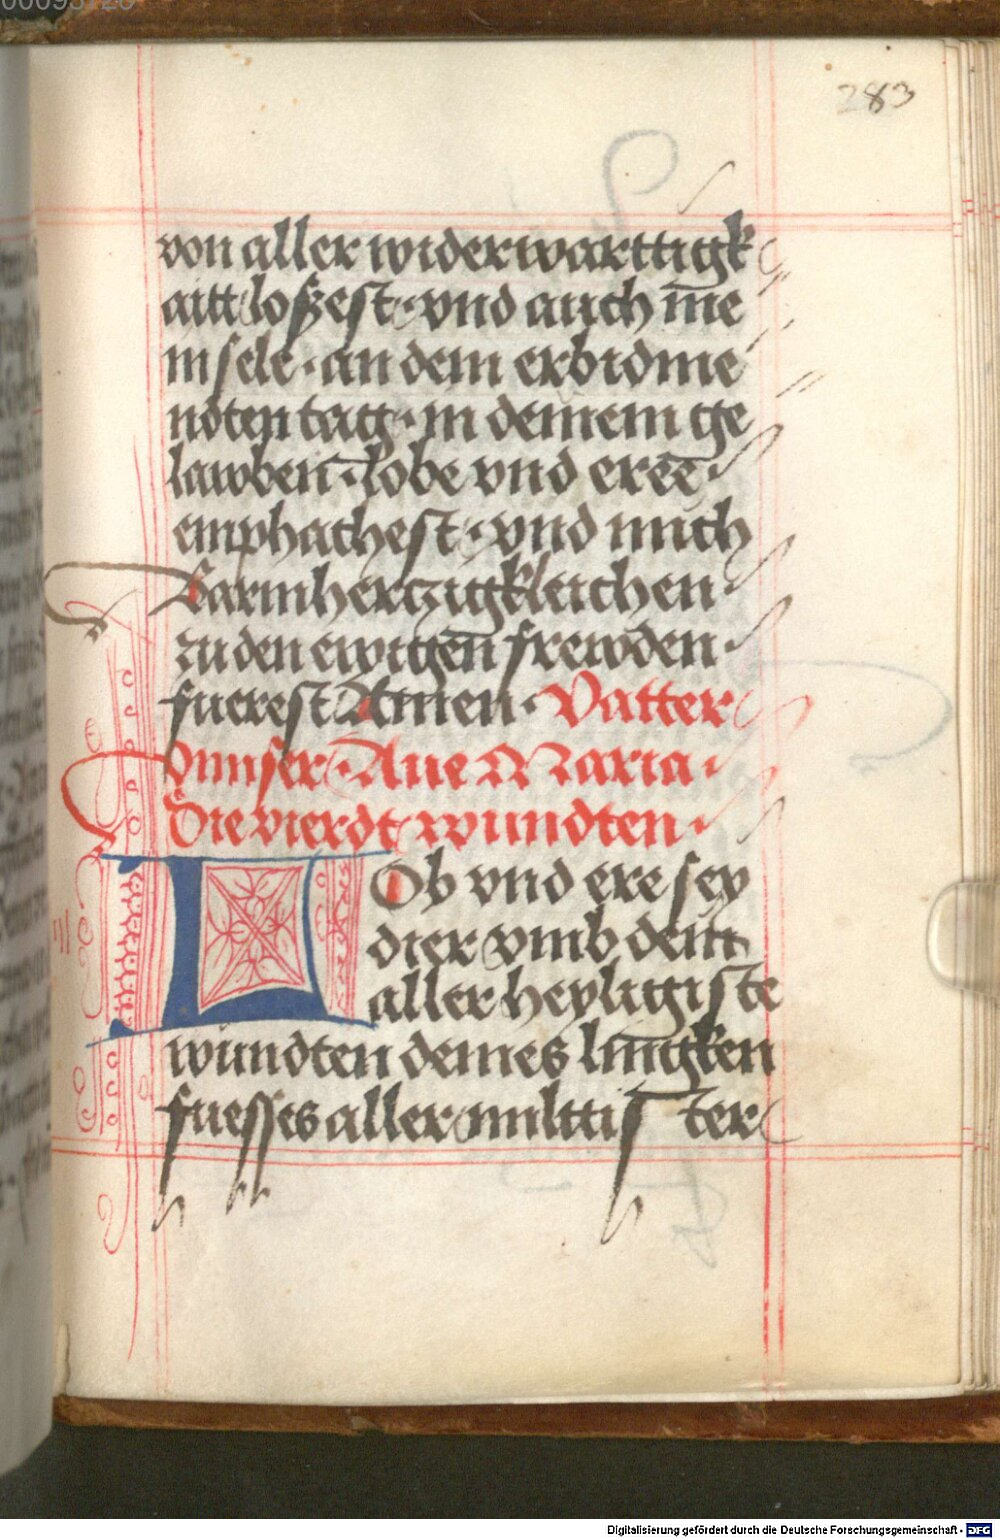 00093128
283
von aller widerwarttigk
aitt loßest · vnd auch me
in sele · an dem erbidme
ndten tag · in deinem ge
lawben · lobe vnd eree ·
emphachest · vnd mich
barmhertzigkleichen ·
zu den ewigen frewden ·
fuerest Amen · Vatter
vnnser · Aue Maria ·
Die vierdt wundten ·
LOb vnd ere sey
dier vmb dein
aller heyligiste
wundten deines lingken
fuesses aller milttister
Digitalisierung gefördert durch die Deutsche Forschungsgemeinschaft - DFG